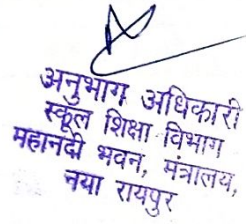 अनुभाग अधिकारी
स्कूल शिक्षा विभाग
महानदी भवन, मंत्रालय,
नया रायपुर